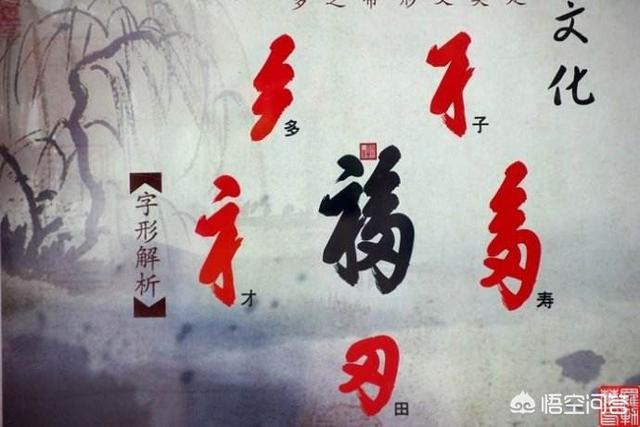 文化
多
子
福
【字形解析】
才
寿
田
悟空问答